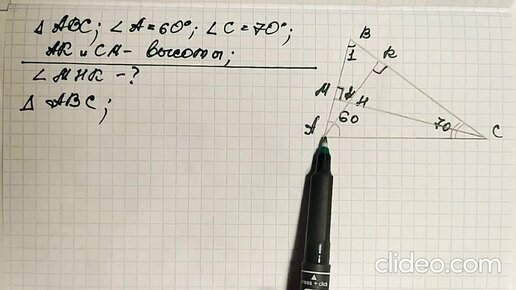 △ ABC; ∠A=60°; ∠C=70°;
AK и CM - высоты;
∠MHK - ?
△ ABC;
B
1
K
M
H
A
60
70
C
press + click
clideo.com